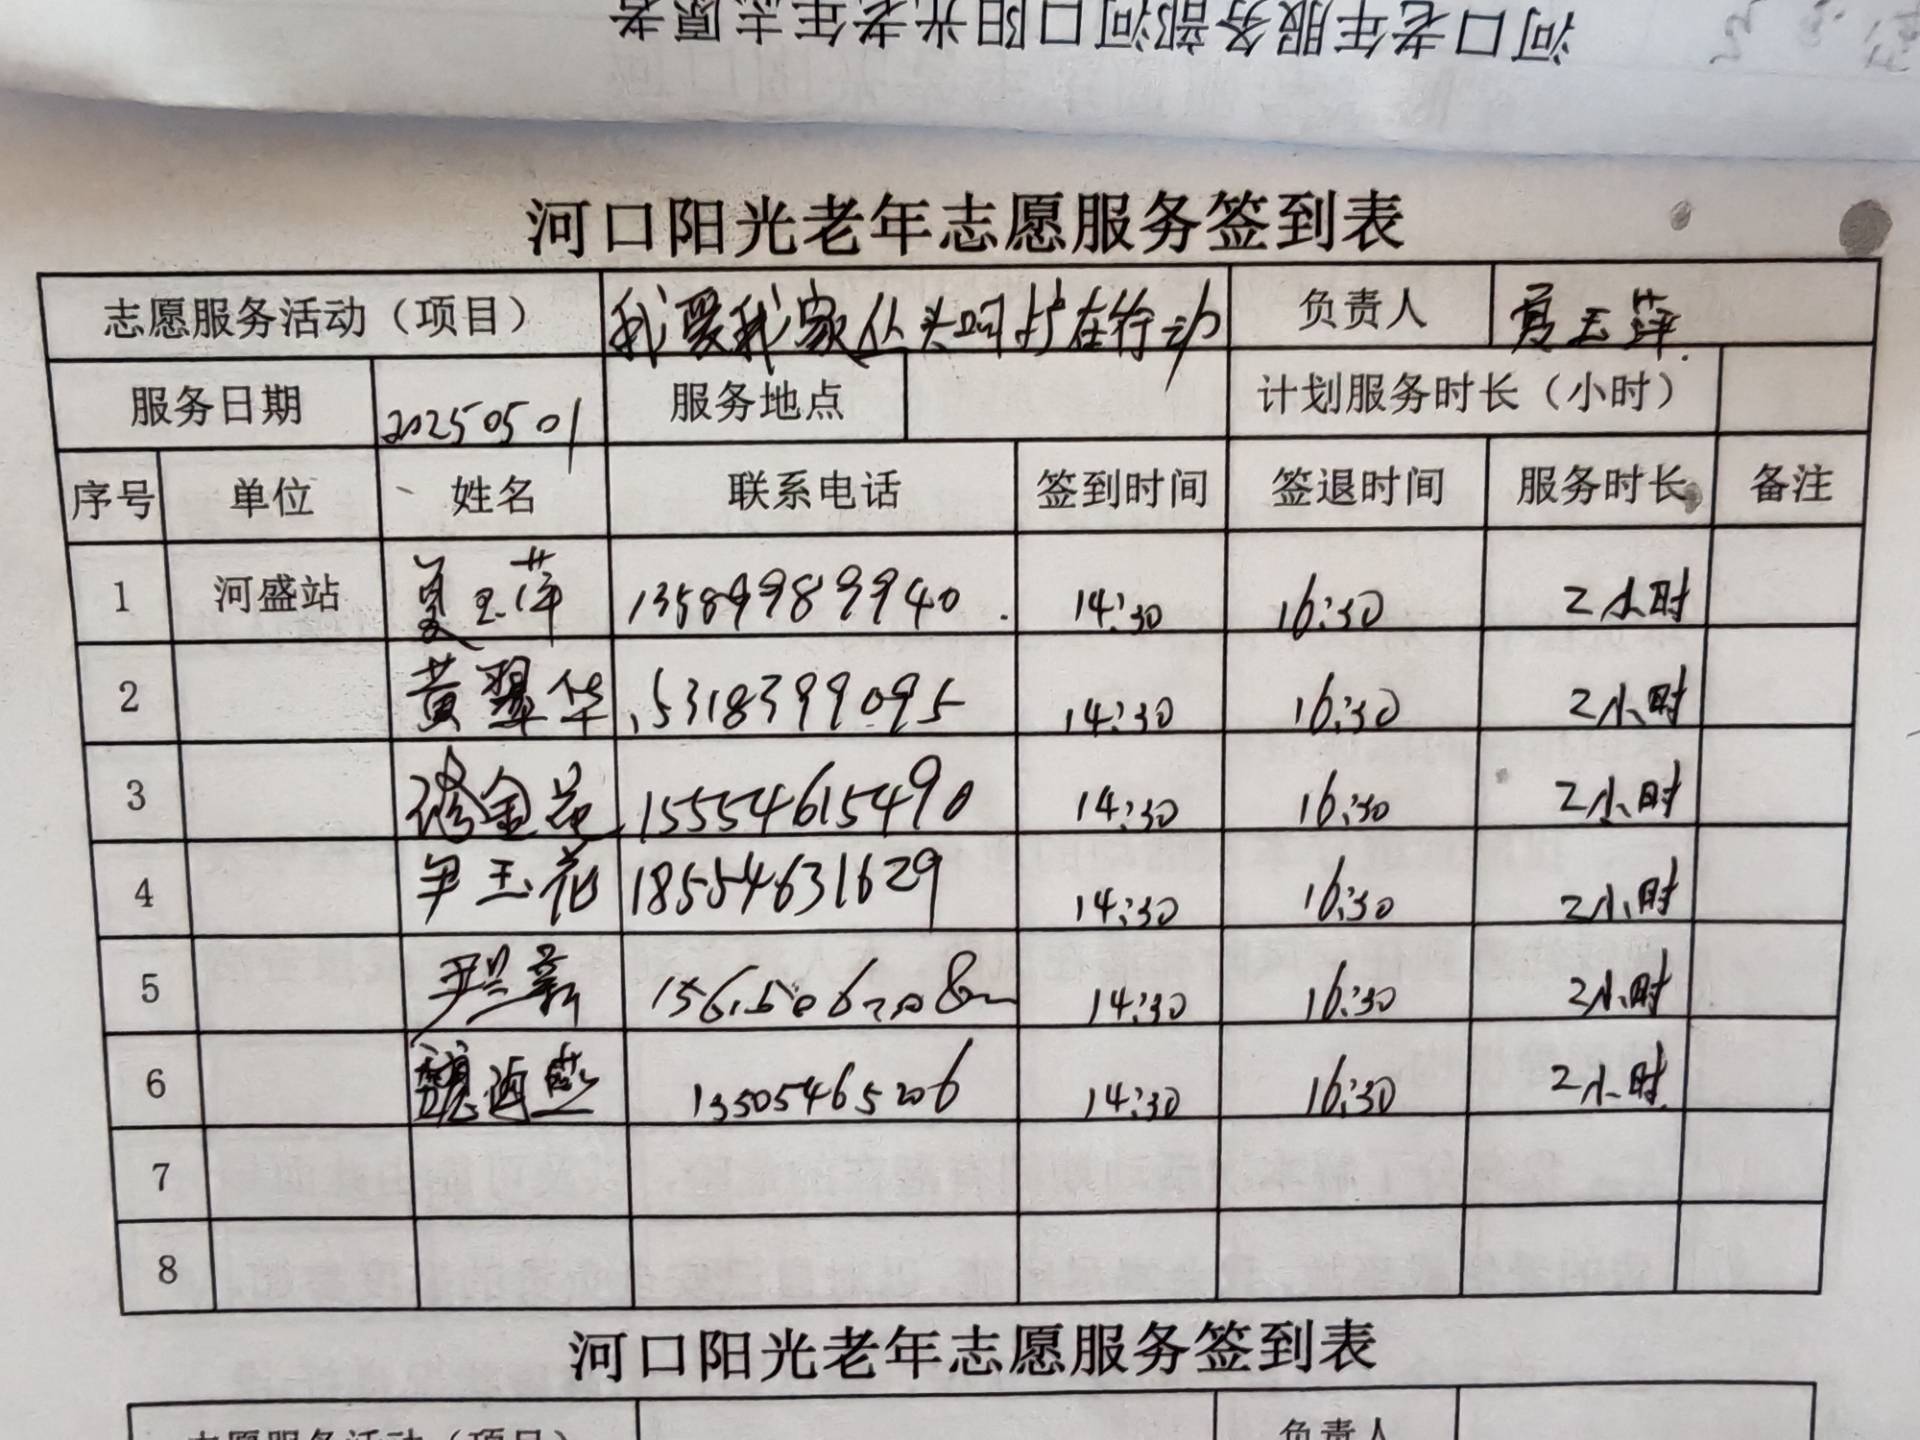 河口老年服务部河口阳光老年志愿者
河口阳光老年志愿服务签到表
志愿服务活动（项目） 我爱我家 丛头呵护在行动 负责人 夏玉萍
服务日期 20250501 服务地点 计划服务时长（小时）
序号 单位 姓名 联系电话 签到时间 签退时间 服务时长 备注
1 河盛站 夏玉萍 13589989940 14:30 16:30 2小时
2 黄翠华 15318399095 14:30 16:30 2小时
3 金花 15554615490 14:30 16:30 2小时
4 尹玉花 18554631629 14:30 16:30 2小时
5 尹兰新 14:30 16:30 2小时
6 魏海燕 13505465206 14:30 16:30 2小时
7
8
河口阳光老年志愿服务签到表
志愿服务活动（项目） 负责人